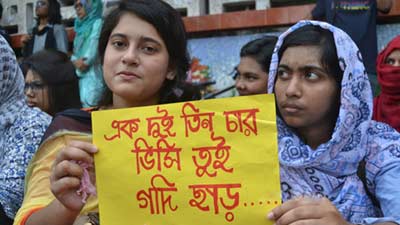 এক দুই তিন চার
ভিসি তুই
গদি ছাড়......